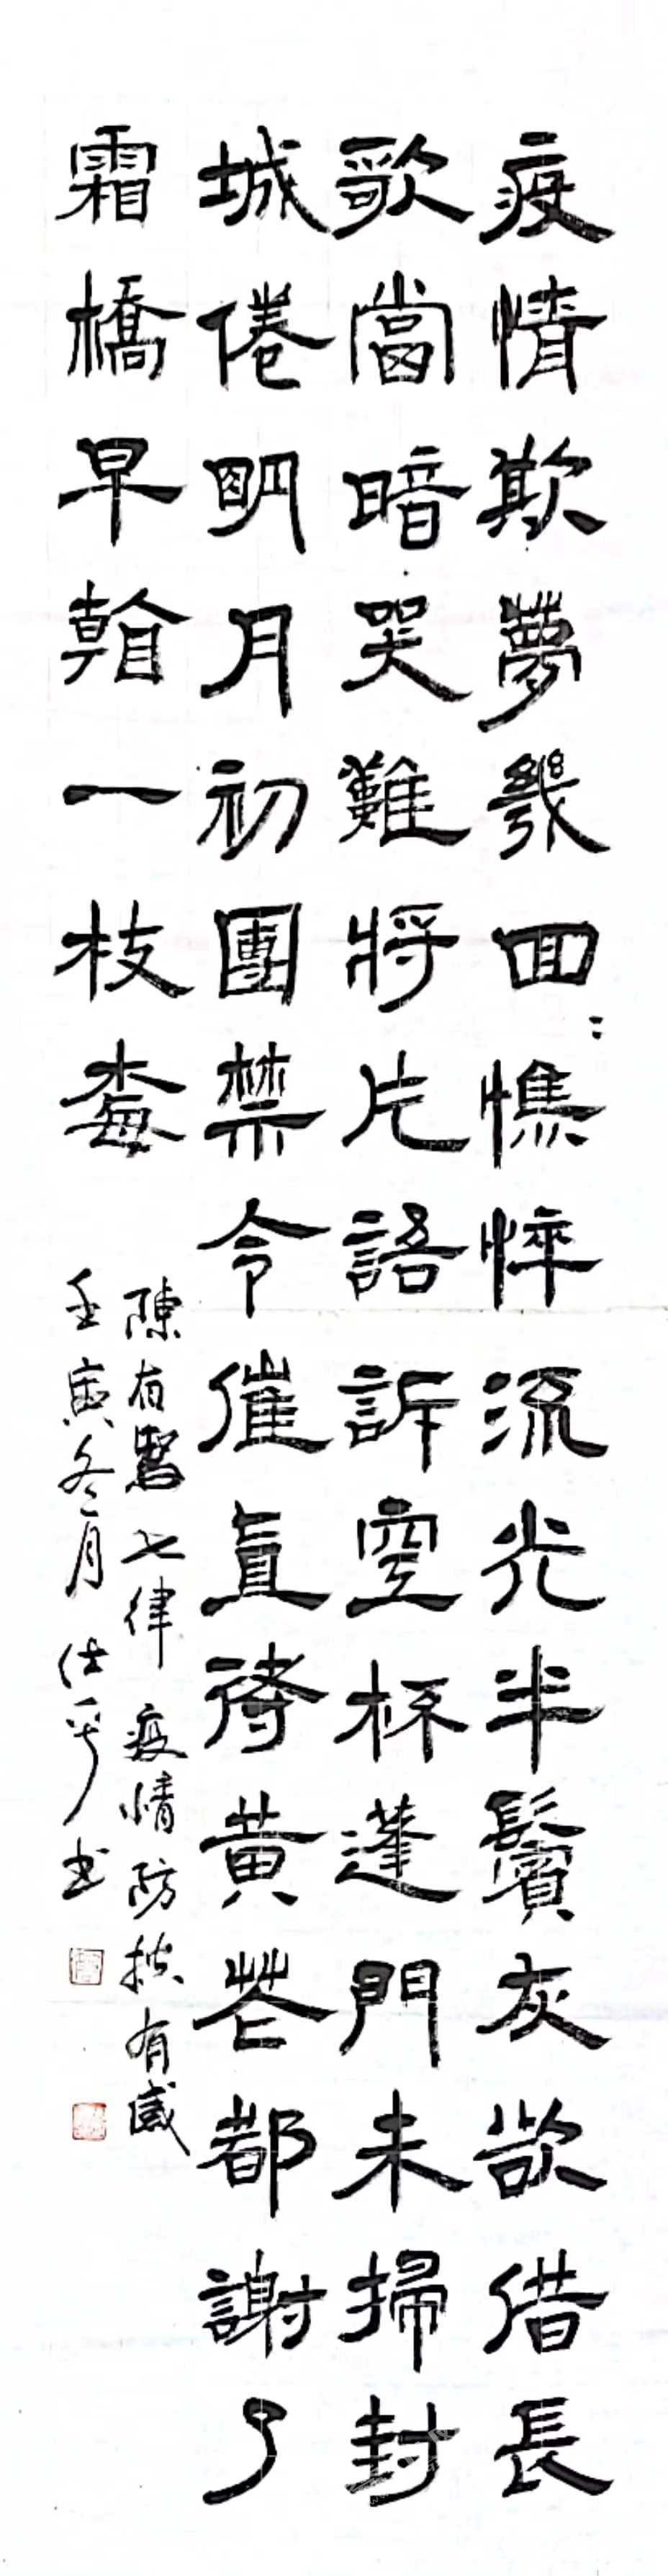 疫情欺夢幾回〻憔悴流光半鬢灰欲借長
歌當暗哭難將片語訴空杯蓬門未掃封
城倦明月初團禁令催直待黃花都謝了
霜橋早韻一枝梅
陳有勝七律疫情防控有感
壬寅冬月仕平书